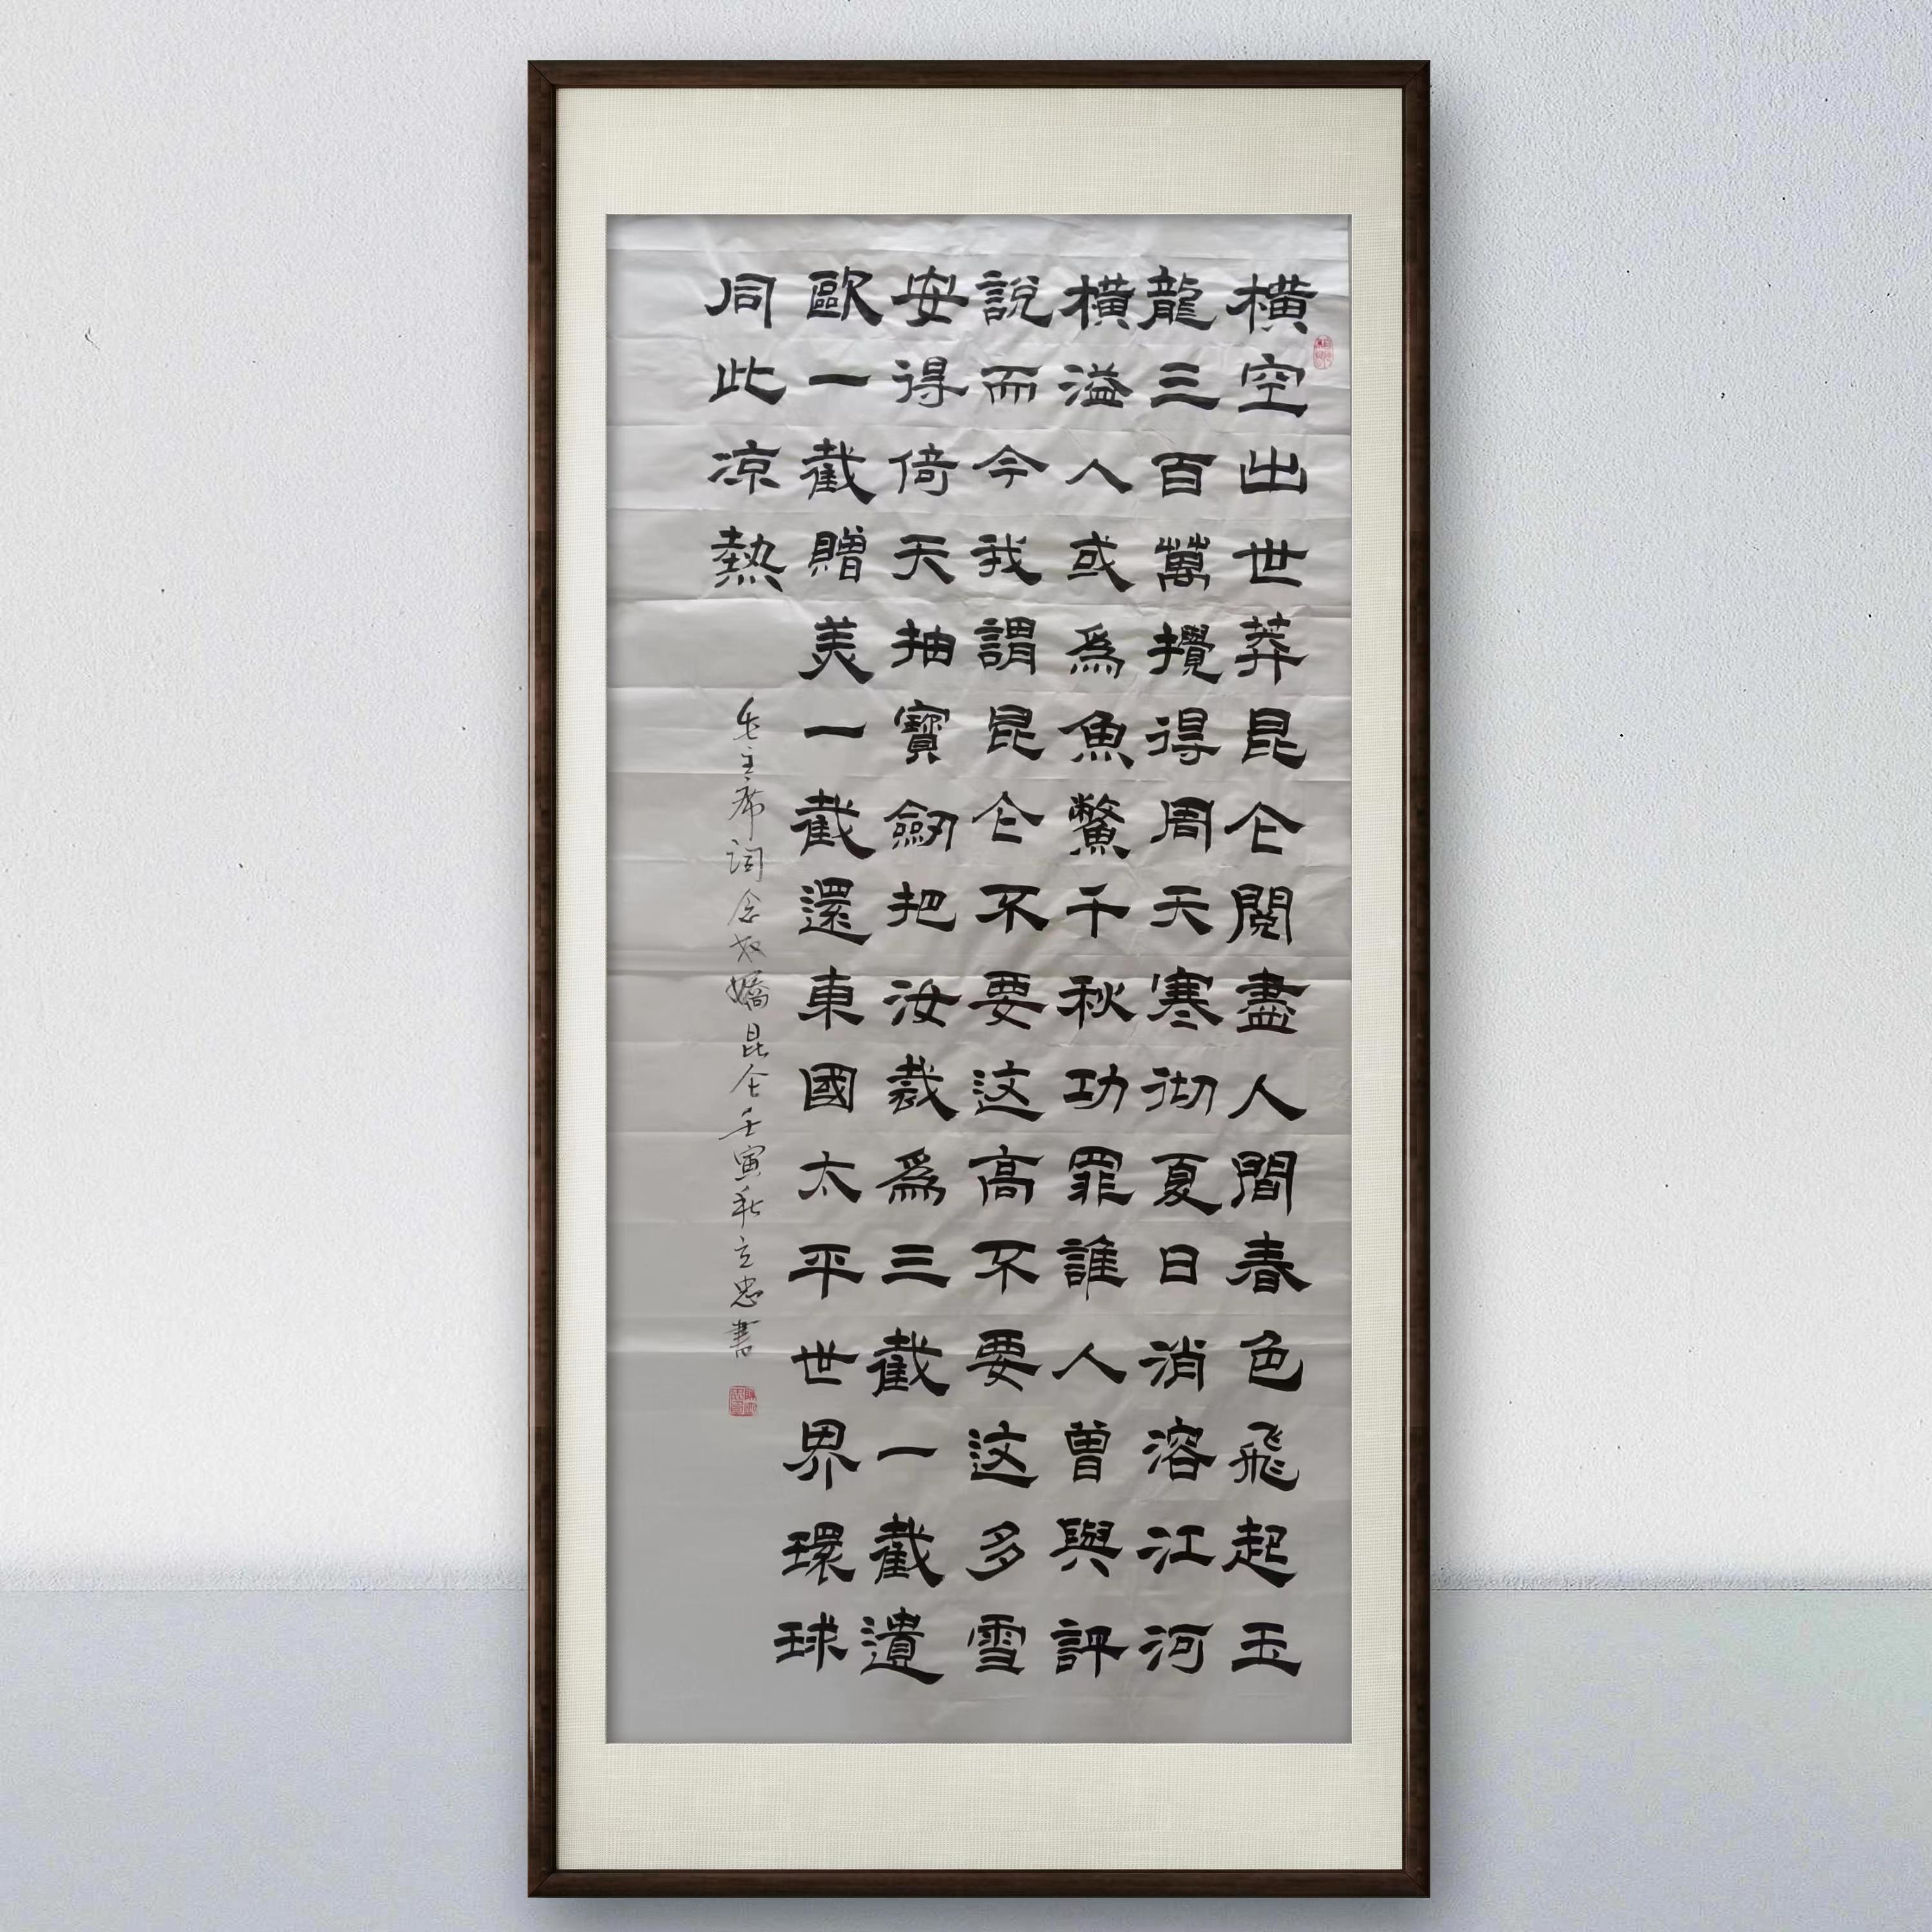 橫空出世莽昆仑閱盡人間春色飛起玉
龍三百萬攪得周天寒彻夏日消溶江河
橫溢人或爲魚鱉千秋功罪誰人曾與評
說而今我謂昆仑不要这高不要这多雪
安得倚天抽寶劒把汝裁爲三截一截遺
歐一截贈美一截還東國太平世界環球
同此凉熱
毛主席词念奴嬌昆仑壬寅秋立忠書